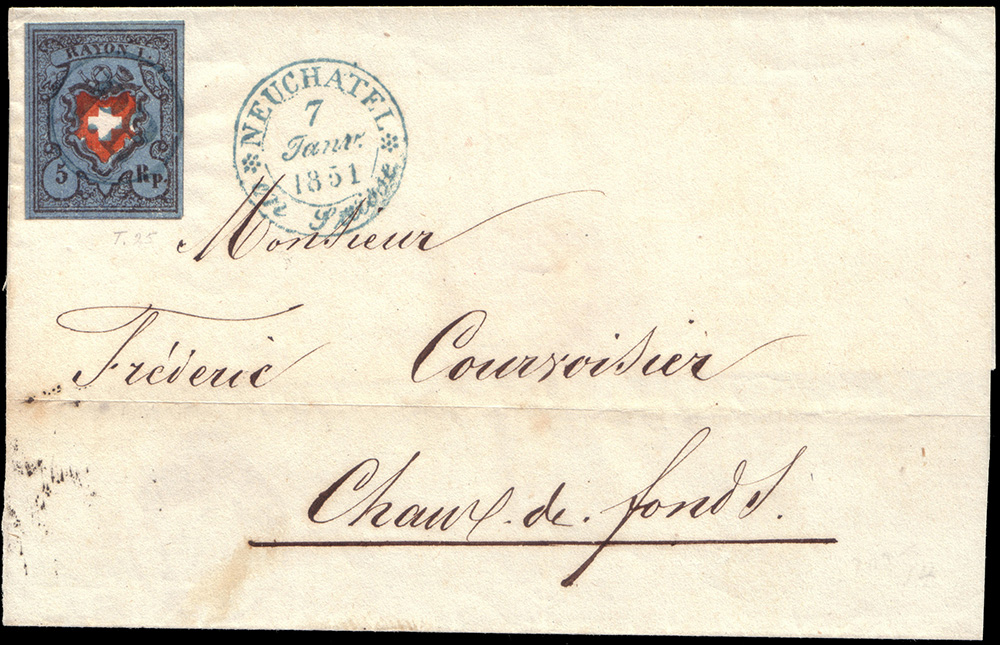 RAYON I.
5 Rp.
NEUCHATEL
7
Janvr.
1851
en Suisse
T. 25
Monsieur
Fréderic Courvoisier
Chaux-de-fonds.